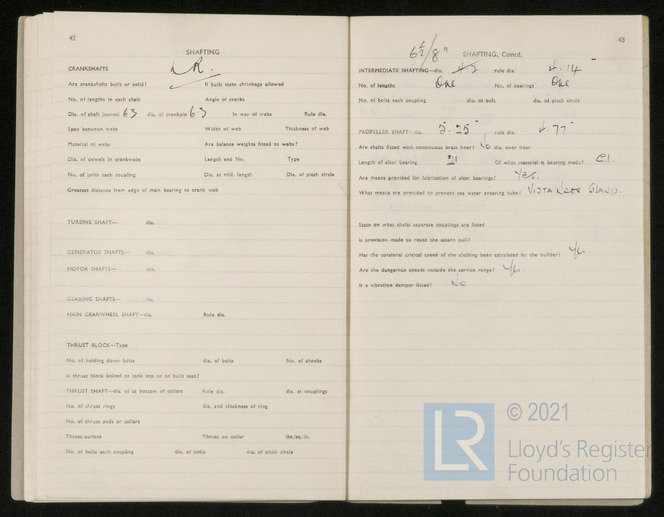 42
SHAFTING
CRANKSHAFTS LR.
Are crankshafts built or solid? If built state shrinkage allowed
No. of lengths in each shaft Angle of cranks
Dia. of shaft journal 63 dia. of crankpin 63 in way of webs Rule dia.
Span between webs Width of web Thickness of web
Material of webs Are balance weights fitted to webs?
Dia. of dowels in crankwebs Length and No. Type
No. of bolts each coupling Dia. at mid. length Dia. of pitch circle
Greatest distance from edge of main bearing to crank web
TURBINE SHAFT— dia.
GENERATOR SHAFTS— dia.
MOTOR SHAFTS— dia.
GEARING SHAFTS— dia.
MAIN GEARWHEEL SHAFT—dia. Rule dia.
THRUST BLOCK—Type
No. of holding down bolts dia. of bolts No. of chocks
Is thrust block bolted to tank top or to built seat?
THRUST SHAFT—dia. of at bottom of collars Rule dia. dia. at couplings
No. of thrust rings dia. and thickness of ring
No. of thrust pads or collars
Thrust surface Thrust on collar lbs./sq. in.
No. of bolts each coupling dia. of bolts dia. of pitch circle
43
SHAFTING, Contd.
INTERMEDIATE SHAFTING—dia. rule dia. 4.14
No. of lengths One No. of bearings One
No. of bolts each coupling dia. of bolt dia. of pitch circle
PROPELLER SHAFT—dia. 5.25" rule dia. 4.77"
Are shafts fitted with continuous brass liner? No dia. over liner
Length of after bearing 21 Of what material is bearing made? CI.
Are means provided for lubrication of after bearings? Yes.
What means are provided to prevent sea water entering tube?
State on what shafts separate couplings are fitted
Is provision made to resist the astern pull?
Has the torsional critical speed of the shafting been calculated by the builder? Yes
Are the dangerous speeds outside the service range? Yes.
Is a vibration damper fitted? No
LR © 2021
Lloyd's Register
Foundation